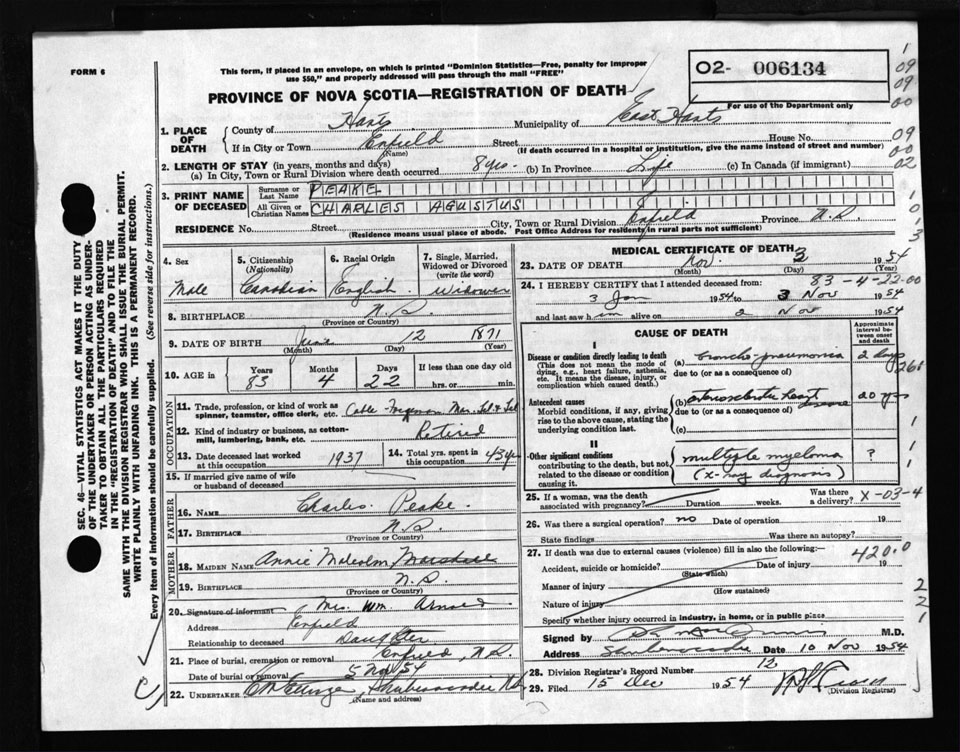 FORM 6
This form, if placed in an envelope, on which is printed "Dominion Statistics—Free, penalty for improper
use $50," and properly addressed will pass through the mail "FREE"
PROVINCE OF NOVA SCOTIA—REGISTRATION OF DEATH
02- 006134
For use of the Department only
1. PLACE OF DEATH
County of Hants Municipality of East Hants
If in City or Town Enfield Street House No.
(Name) (If death occurred in a hospital or institution, give the name instead of street and number)
2. LENGTH OF STAY (in years, months and days)
(a) In City, Town or Rural Division where death occurred 8 yrs. (b) In Province Life (c) In Canada (if immigrant)
3. PRINT NAME OF DECEASED
Surname or Last Name PEAKE
All Given or Christian Names CHARLES AGUSTUS
RESIDENCE No. Street City, Town or Rural Division Enfield Province N.S.
(Residence means usual place of abode. Post Office Address for residents in rural parts not sufficient)
4. Sex Male
5. Citizenship (Nationality) Canadian
6. Racial Origin English
7. Single, Married, Widowed or Divorced (write the word) Widower
8. BIRTHPLACE N.S.
(Province or Country)
9. DATE OF BIRTH June 12 1871
(Month) (Day) (Year)
10. AGE in Years 83 Months 4 Days 22 If less than one day old hrs. or min.
OCCUPATION
11. Trade, profession, or kind of work as spinner, teamster, office clerk, etc. Cable Foreman Mar. Tel. & Tel
12. Kind of industry or business, as cotton-mill, lumbering, bank, etc. Retired
13. Date deceased last worked at this occupation 1937
14. Total yrs. spent in this occupation 43 yrs
15. If married give name of wife or husband of deceased
FATHER
16. NAME Charles Peake
17. BIRTHPLACE N.S.
(Province or Country)
MOTHER
18. MAIDEN NAME Annie Malcolm
19. BIRTHPLACE N.S.
(Province or Country)
20. Signature of informant Mrs. Wm.
Address Enfield
Relationship to deceased Daughter
21. Place of burial, cremation or removal Enfield, N.S.
Date of burial or removal 5 Nov 54
22. UNDERTAKER Shubenacadie
(Name and address)
MEDICAL CERTIFICATE OF DEATH
23. DATE OF DEATH Nov. 3 1954
(Month) (Day) (Year)
83-4-22-00
24. I HEREBY CERTIFY that I attended deceased from:
3 Jan 1954 to 3 Nov 1954
and last saw him alive on 2 Nov 1954
CAUSE OF DEATH
Approximate interval between onset and death
I
Disease or condition directly leading to death
(This does not mean the mode of dying, e.g., heart failure, asthenia, etc. It means the disease, injury, or complication which caused death.)
(a) broncho pneumonia 2 days
due to (or as a consequence of)
Antecedent causes
Morbid conditions, if any, giving rise to the above cause, stating the underlying condition last.
(b) arteriosclerotic heart 20 yrs
due to (or as a consequence of)
(c)
II
Other significant conditions
contributing to the death, but not related to the disease or condition causing it.
multiple myeloma ?
(x-ray diagnosis)
25. If a woman, was the death associated with pregnancy? Duration weeks. Was there a delivery? X-03-4
26. Was there a surgical operation? no Date of operation 19
State findings Was there an autopsy?
27. If death was due to external causes (violence) fill in also the following:— 420.0
Accident, suicide or homicide? Date of injury 19
(State which)
Manner of injury
(How sustained)
Nature of injury
Specify whether injury occurred in industry, in home, or in public place
Signed by M.D.
Address Shubenacadie Date 10 Nov 1954
28. Division Registrar's Record Number 12
29. Filed 15 Dec 1954
(Division Registrar)
SEC. 46—VITAL STATISTICS ACT MAKES IT THE DUTY
OF THE UNDERTAKER OR PERSON ACTING AS UNDER-
TAKER TO OBTAIN ALL THE PARTICULARS REQUIRED
IN THE "REGISTRATION OF DEATH" AND TO FILE THE
SAME WITH THE DIVISION REGISTRAR WHO SHALL ISSUE THE BURIAL PERMIT.
WRITE PLAINLY WITH UNFADING INK. THIS IS A PERMANENT RECORD.
Every item of information should be carefully supplied. (See reverse side for instructions.)
1
09
09
00
09
00
02
1
0
1
3
1
1
1
2
2
1